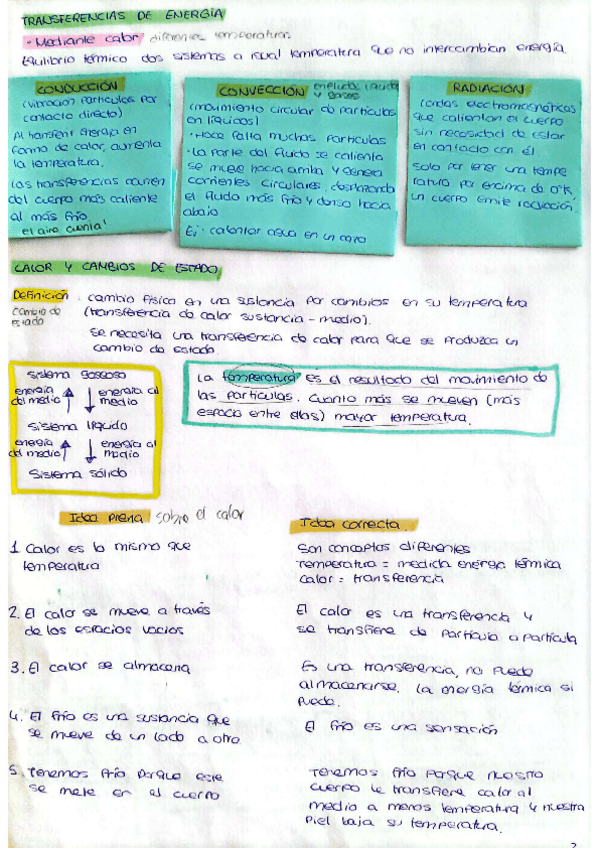 TRANSFERENCIAS DE ENERGÍA
- Mediante calor diferentes temperaturas
Equilibrio térmico dos sistemas a igual temperatura que no intercambian energía
CONDUCCIÓN
(vibración partículas por
contacto directo)
Al transferir energía en
forma de calor, aumenta
la temperatura.
Las transferencias ocurren
del cuerpo más caliente
al más frío
el aire cuenta!
CONVECCIÓN en fluidos líquidos
y gases
(movimiento circular de partículas
en líquidos)
· Hace falta muchas partículas
· La parte del fluido se calienta
se mueve hacia arriba y genera
corrientes circulares, desplazando
el fluido más frío y denso hacia
abajo
Ej: calentar agua en un cazo
RADIACIÓN
(ondas electromagnéticas
que calientan el cuerpo
sin necesidad de estar
en contacto con él.
Solo por tener una tempe
ratura por encima de 0ºK
un cuerpo emite radiación.
CALOR Y CAMBIOS DE ESTADO
Definición · cambio físico en una sustancia por cambios en su temperatura
cambio de estado
(transferencia de calor sustancia - medio).
Se necesita una transferencia de calor para que se produzca un
cambio de estado.
Sistema gaseoso
energía del medio ↑ ↓ energía al medio
Sistema líquido
energía del medio ↑ ↓ energía al medio
Sistema sólido
La temperatura es el resultado del movimiento de
las partículas. Cuanto más se mueven (más
espacio entre ellas) mayor temperatura.
Idea previa sobre el calor
Idea correcta.
1 Calor es lo mismo que
temperatura
Son conceptos diferentes
Temperatura = medida energía térmica
calor = transferencia
2. El calor se mueve a través
de los espacios vacíos
El calor es una transferencia y
se transfiere de partícula a partícula
3. El calor se almacena
Es una transferencia, no puede
almacenarse. La energía térmica si
puede.
4. El frío es una sustancia que
se mueve de un lado a otro.
El frío es una sensación
5. Tenemos frío porque este
se mete en el cuerpo
Tenemos frío porque nuestro
cuerpo le transfiere calor al
medio a menos temperatura y nuestra
piel baja su temperatura.